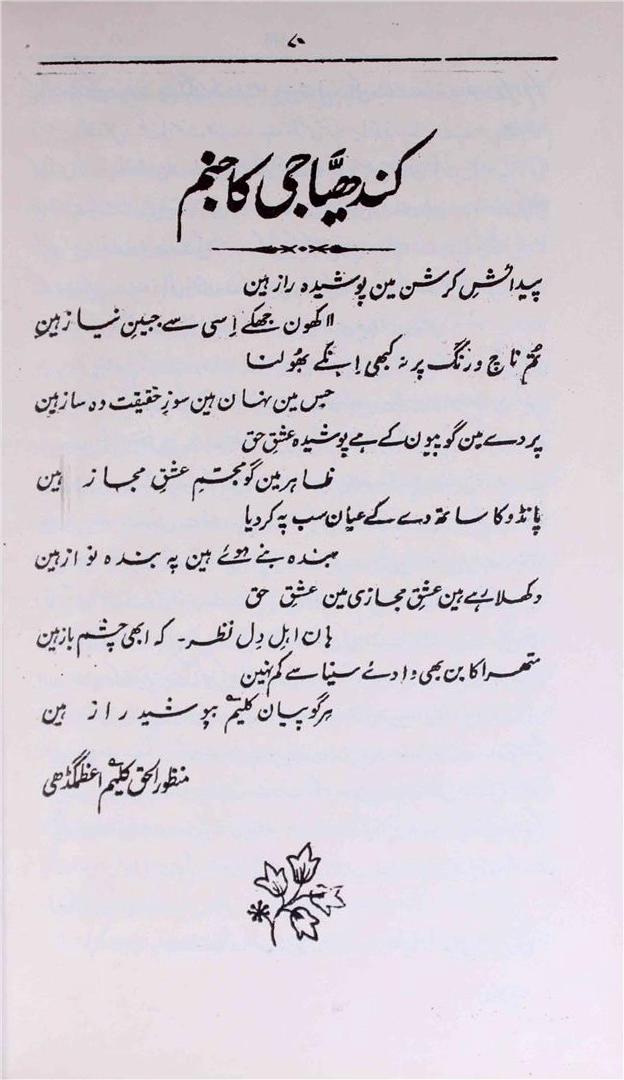 ۷
کندھیّا جی کا جنم
پیدائشِ کرشن مین پوشیدہ راز ہین
لاکھون جھکے اِسی سے جبینِ نیاز ہین
تُم ناچ و رنگ پر نہ کبھی اِنکے بھُولنا
جس مین نہان ہین سوزِ حقیقت وہ ساز ہین
پردے مین گوپیون کے ہے پوشیدہ عشقِ حق
ظاہر مین گو مجسّم عشقِ مجاز ہین
پانڈو کا ساتھ دے کے عیان سب پہ کر دیا
بندہ بنے ہوئے ہین یہ بندہ نواز ہین
دکھلا رہے ہین عشق مجازی مین عشق حق
ہان اہل دِل نظر۔ کہ ابھی چشم باز ہین
متھرا کا بن بھی وادئے سینا سے کم نہین
ہر گوپیان کلیمؔ پوشید راز ہین
منظور الحق کلیمؔ اعظمگڈھی